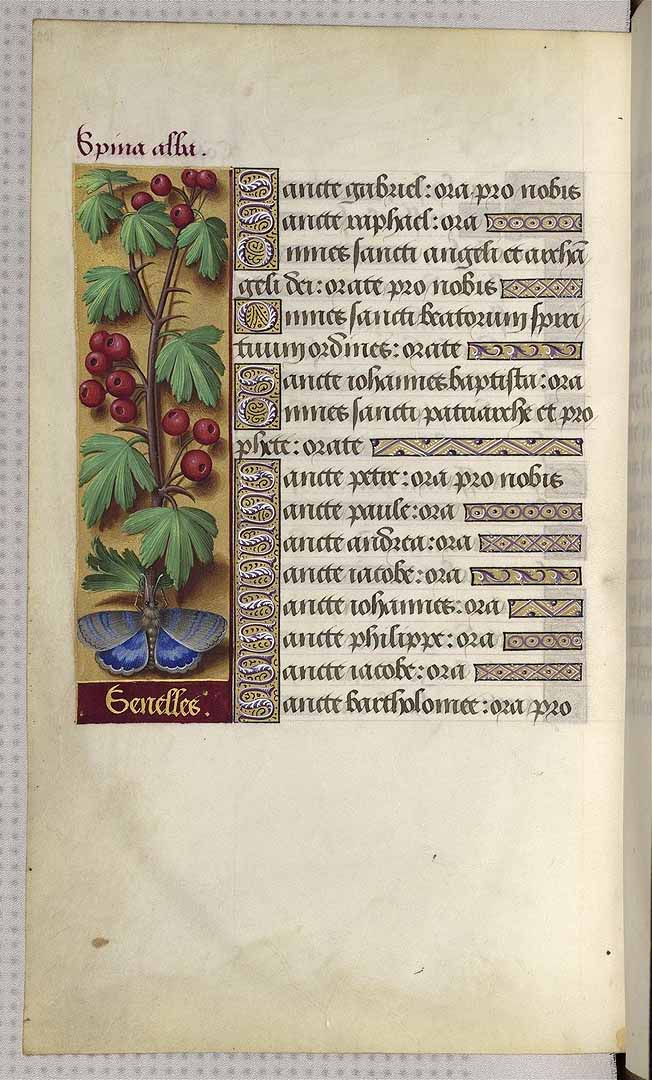 Spina alba.
Sancte gabriel: ora pro nobis
Sancte raphael: ora
Omnes sancti angeli et archã
geli dei: orate pro nobis
Omnes sancti beatorum spiri
tuum ordines: orate
Sancte iohannes baptista: ora
Omnes sancti patriarche et pro
phete: orate
Sancte petre: ora pro nobis
Sancte paule: ora
Sancte andrea: ora
Sancte iacobe: ora
Sancte iohannes: ora
Sancte philippe: ora
Sancte iacobe: ora
Sancte bartholomee: ora pro
Senelles.